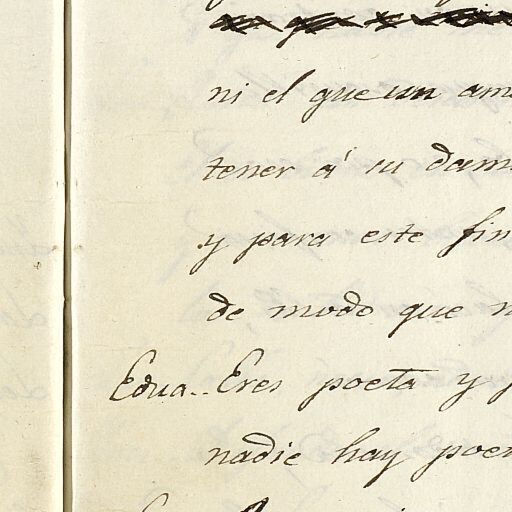 ni el que un am
tener á su dam
y para este fin
de modo que n
Edua.. Eres poeta y
nadie hay poe